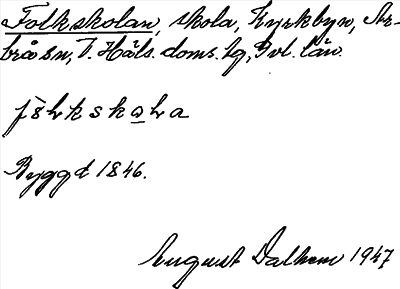 Folkskolan, skola, Kyrkbyn, Ar-
brå sn, V. Häls. doms. hg, Gvl. län.
Byggd 1846.
August Dalhem 1947